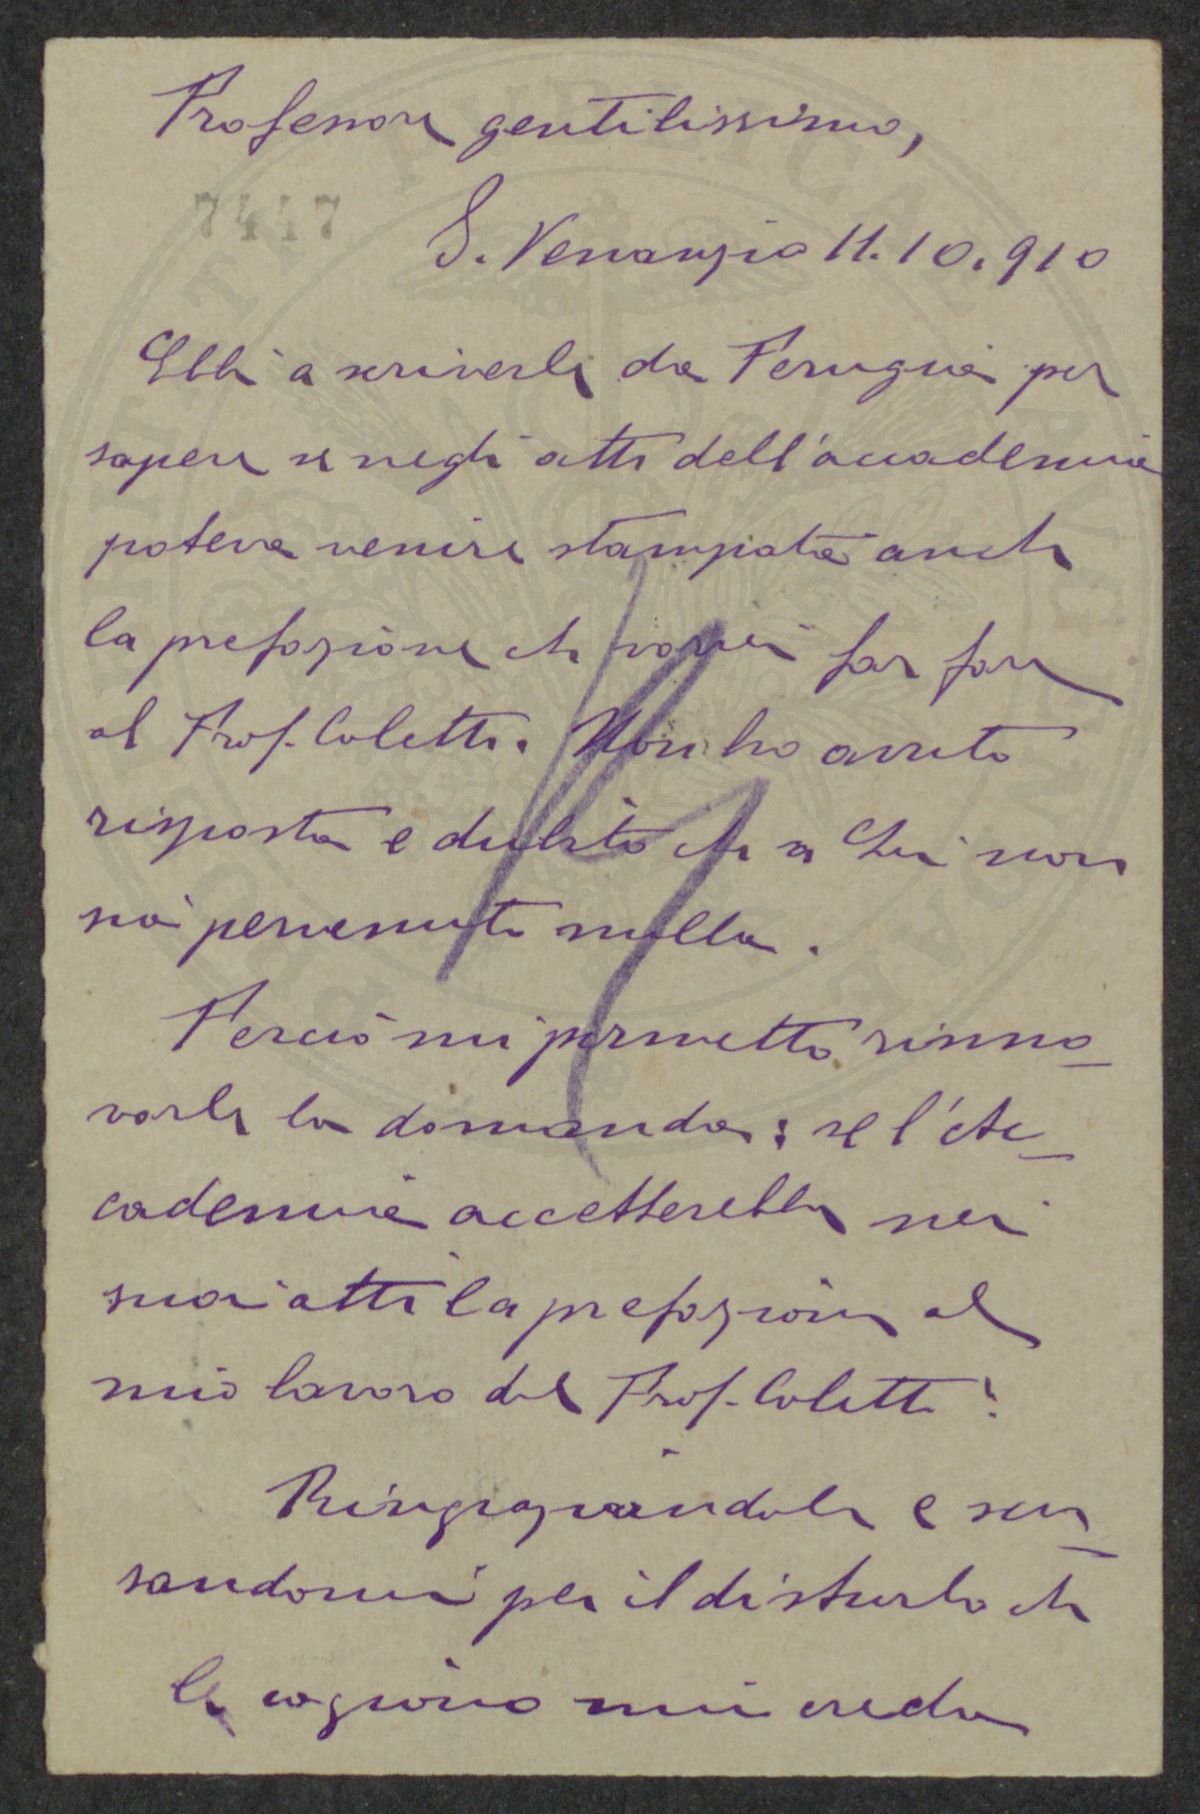 Professore gentilissimo,
7447
S. Venanzio 11.10.910
Ebbi a scriverle da Perugia per
sapere se negli atti dell'accademia
poteva venire stampata anche
la prefazione che vorrei far fare
al Prof. Coletti. Non ho avuto
risposta e dubito che a Lei non
sia pervenuto nulla.
Perciò mi permetto rinno-
varle la domanda: se l'Ac-
cademia accetterebbe nei
suoi atti la prefazione al
mio lavoro del Prof. Coletti?
Ringraziandola e scu-
sandomi per il disturbo che
le cagiono mi creda